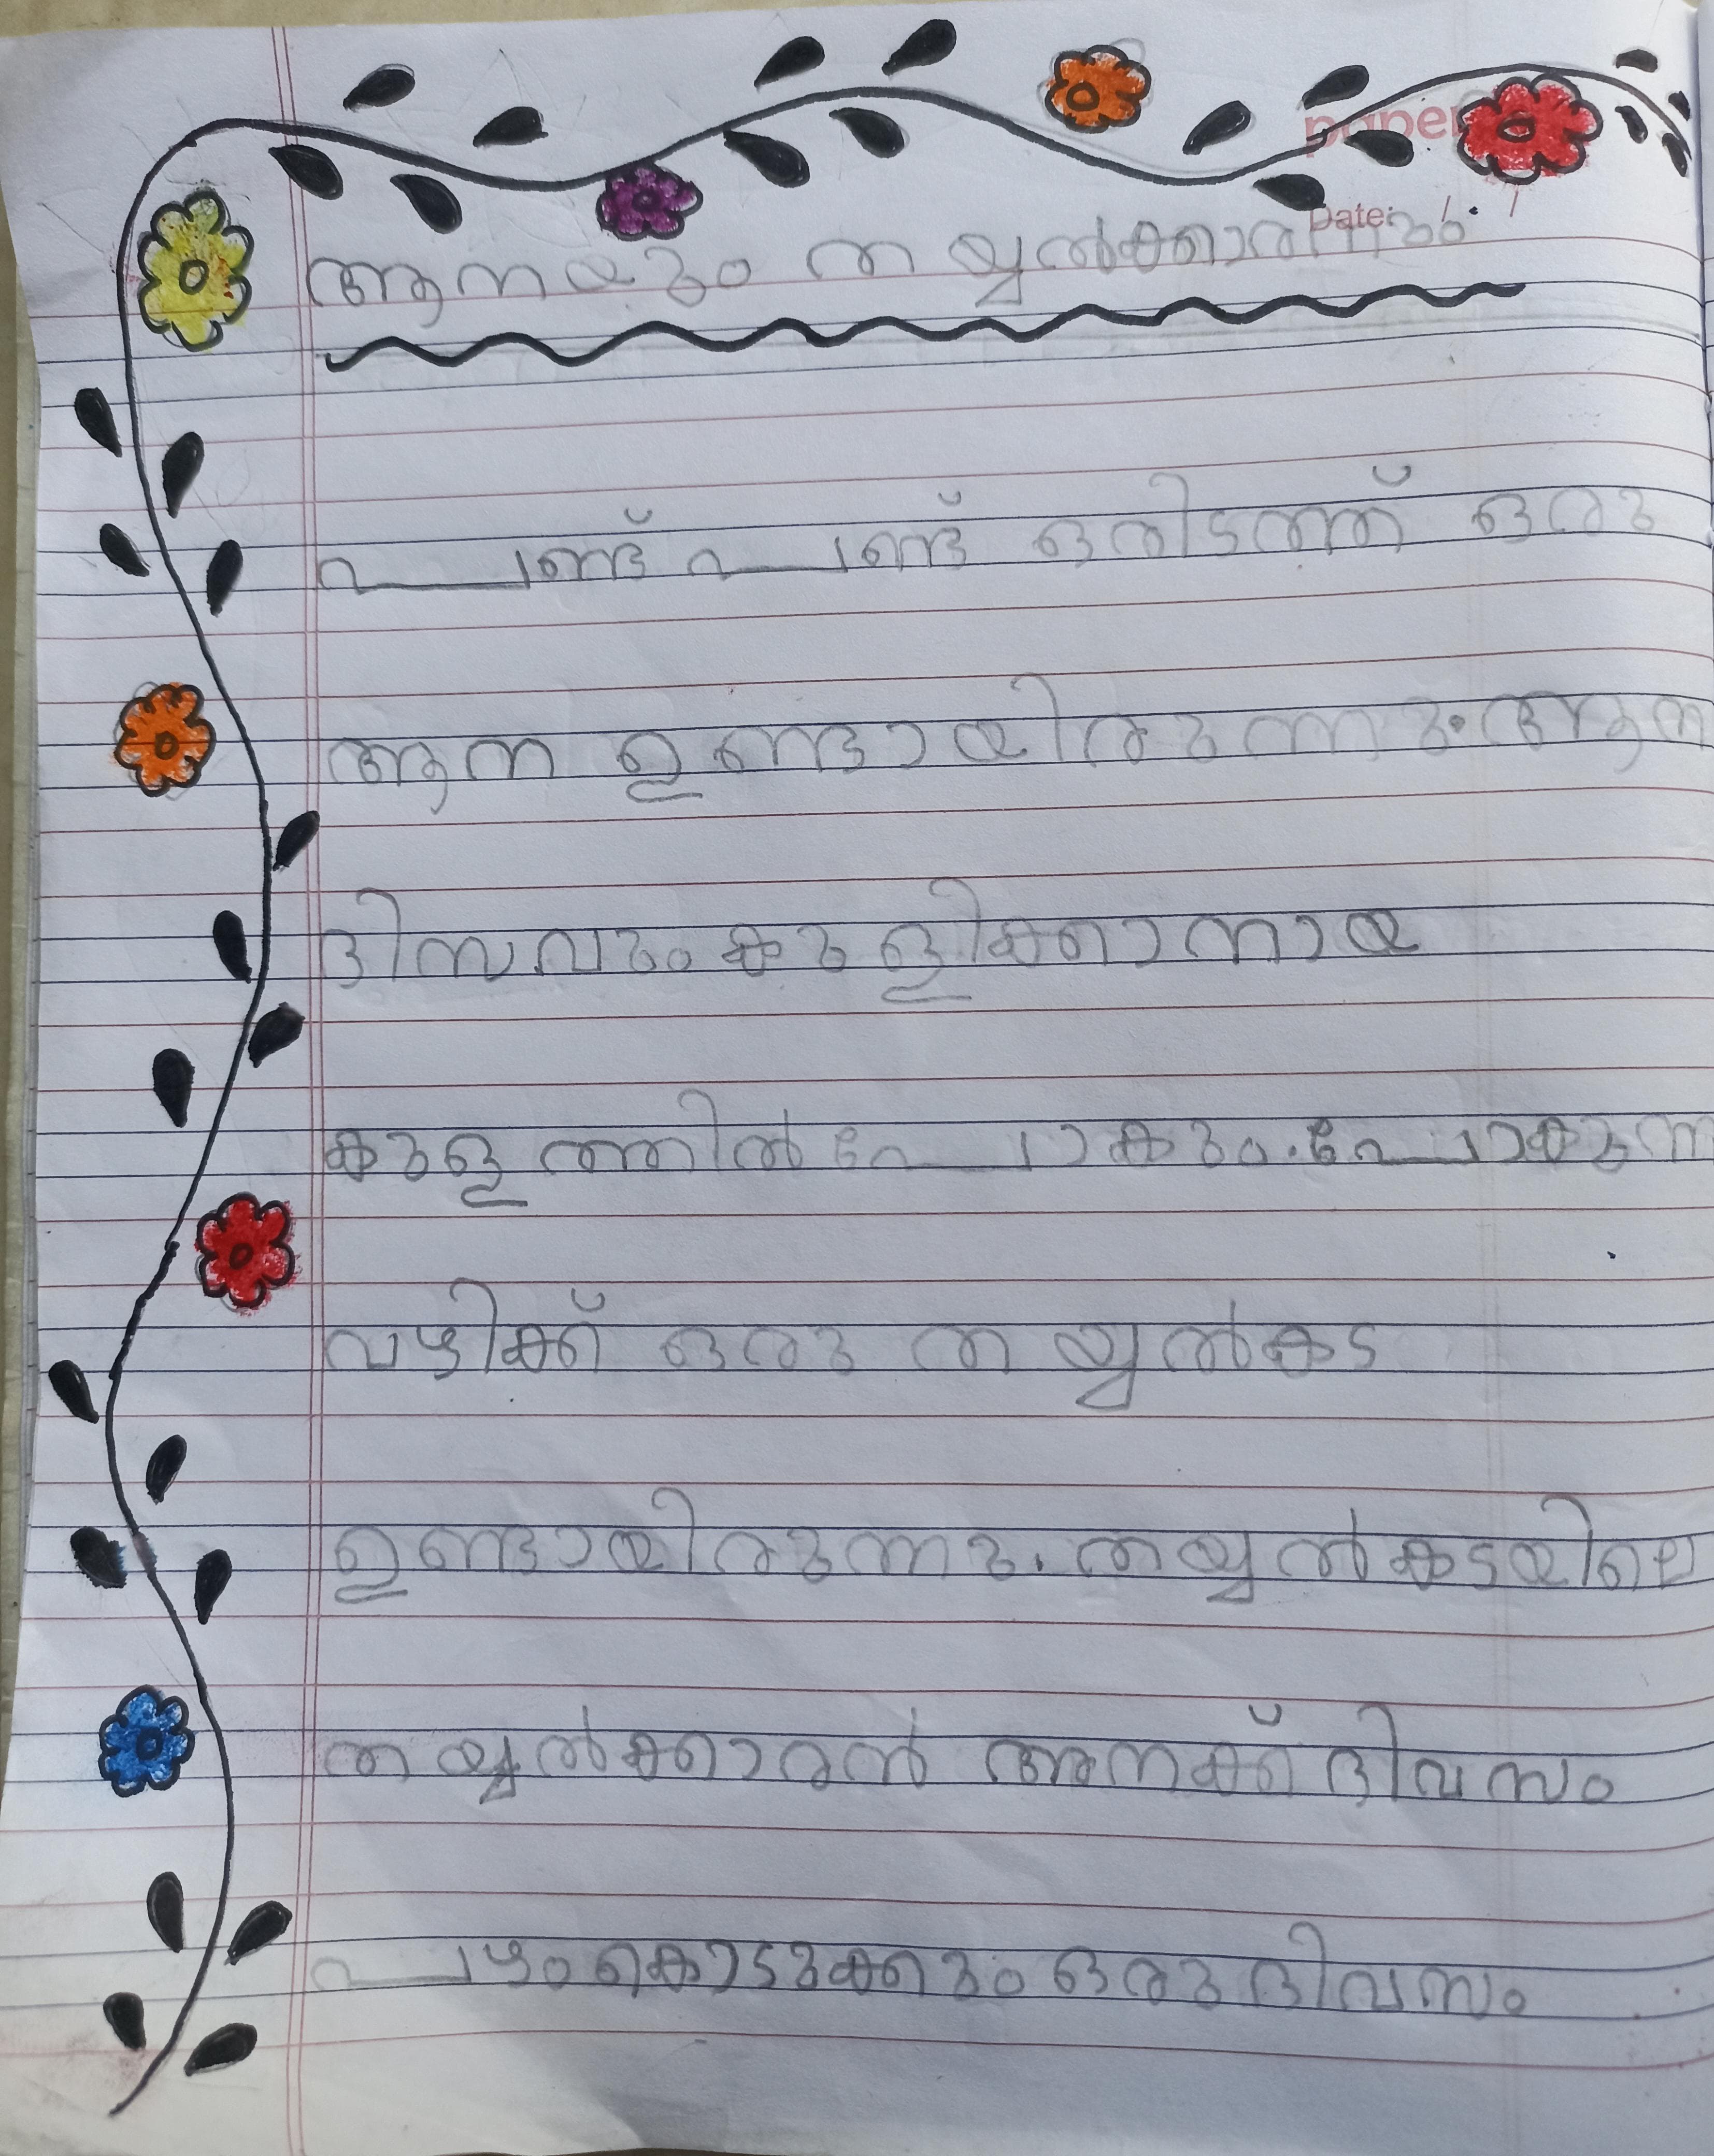 paper
Date:
ആനയും തയ്യൽക്കാരനും
പണ്ട് പണ്ട് ഒരിടത്ത് ഒരു
ആന ഉണ്ടായിരുന്നു. ആന
ദിസവും കുളിക്കാനായ
കുളത്തിൽ പോകും. പോകുന്ന
വഴിക്ക് ഒരു തയ്യൽകട
ഉണ്ടായിരുന്നു. തയ്യൽകടയിലെ
തയ്യൽക്കാരൻ അനക്ക് ദിവസം
പഴം കൊടുക്കും ഒരു ദിവസം